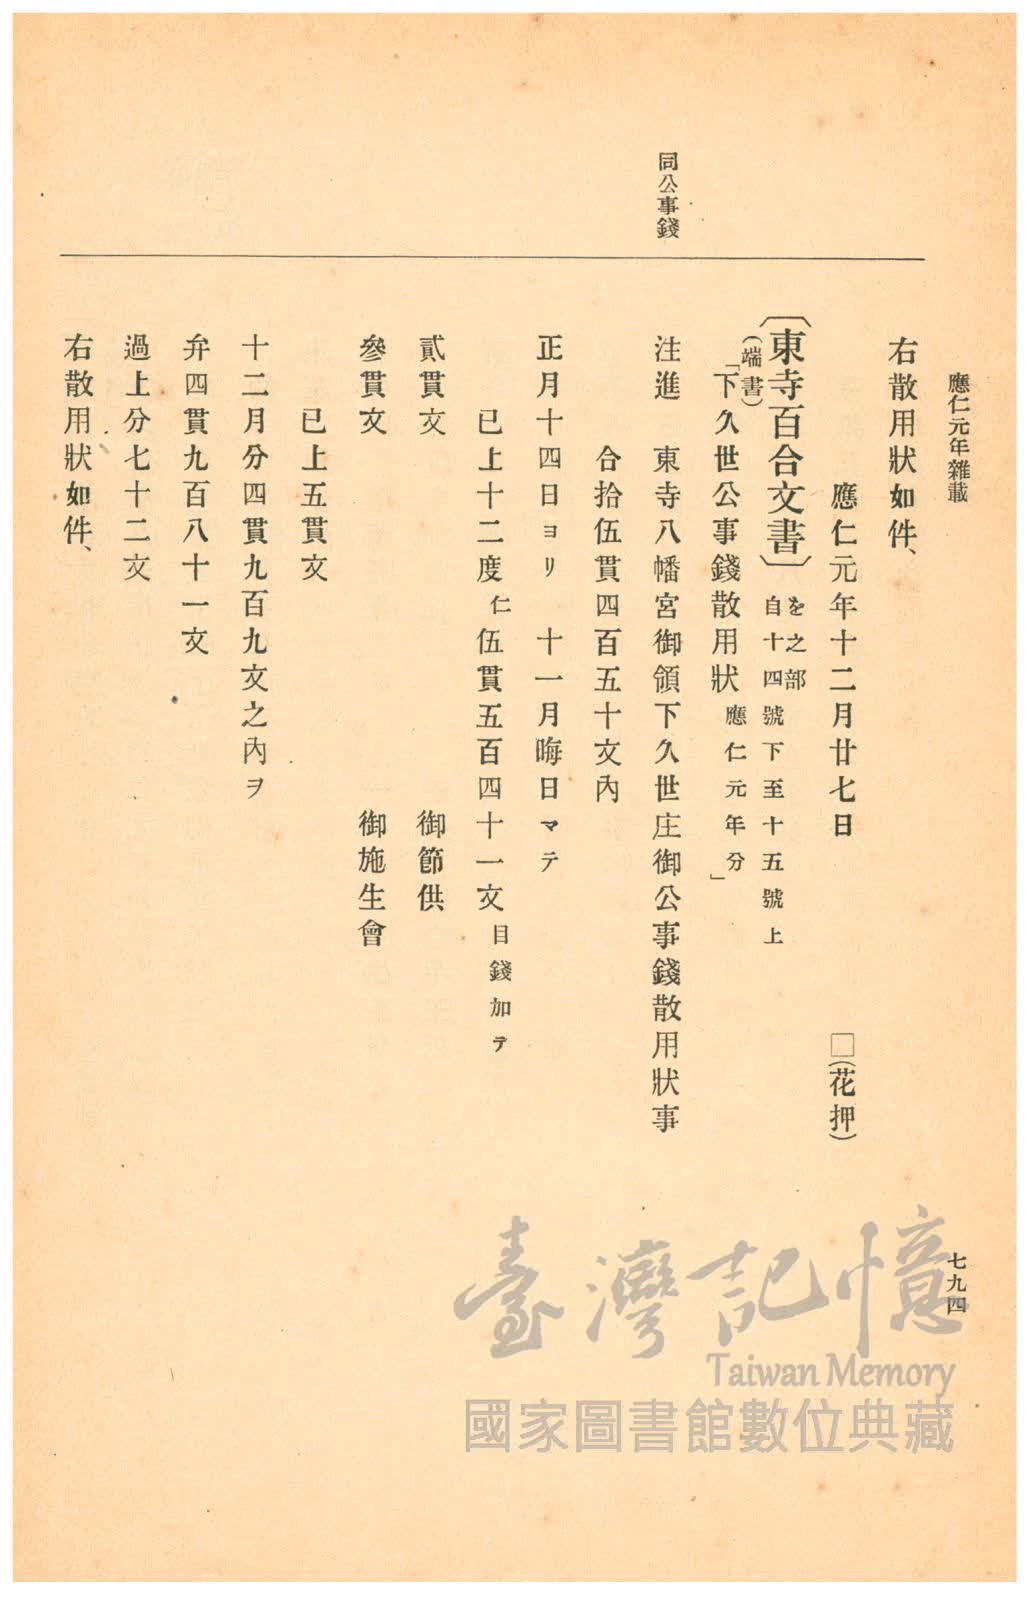 應仁元年雜載
七九四
同公事錢
右散用狀如件、
應仁元年十二月廿七日　□(花押)
〔東寺百合文書〕を之部自十四號下至十五號上
(端書)
「下久世公事錢散用狀應仁元年分」
注進　東寺八幡宮御領下久世庄御公事錢散用狀事
合拾伍貫四百五十文內
正月十四日ヨリ　十一月晦日マテ
已上十二度仁伍貫五百四十一文目錢加テ
貳貫文　御節供
參貫文　御施生會
已上五貫文
十二月分四貫九百九文之內ヲ
弁四貫九百八十一文
過上分七十二文
右散用狀如件、
臺灣記憶
Taiwan Memory
國家圖書館數位典藏